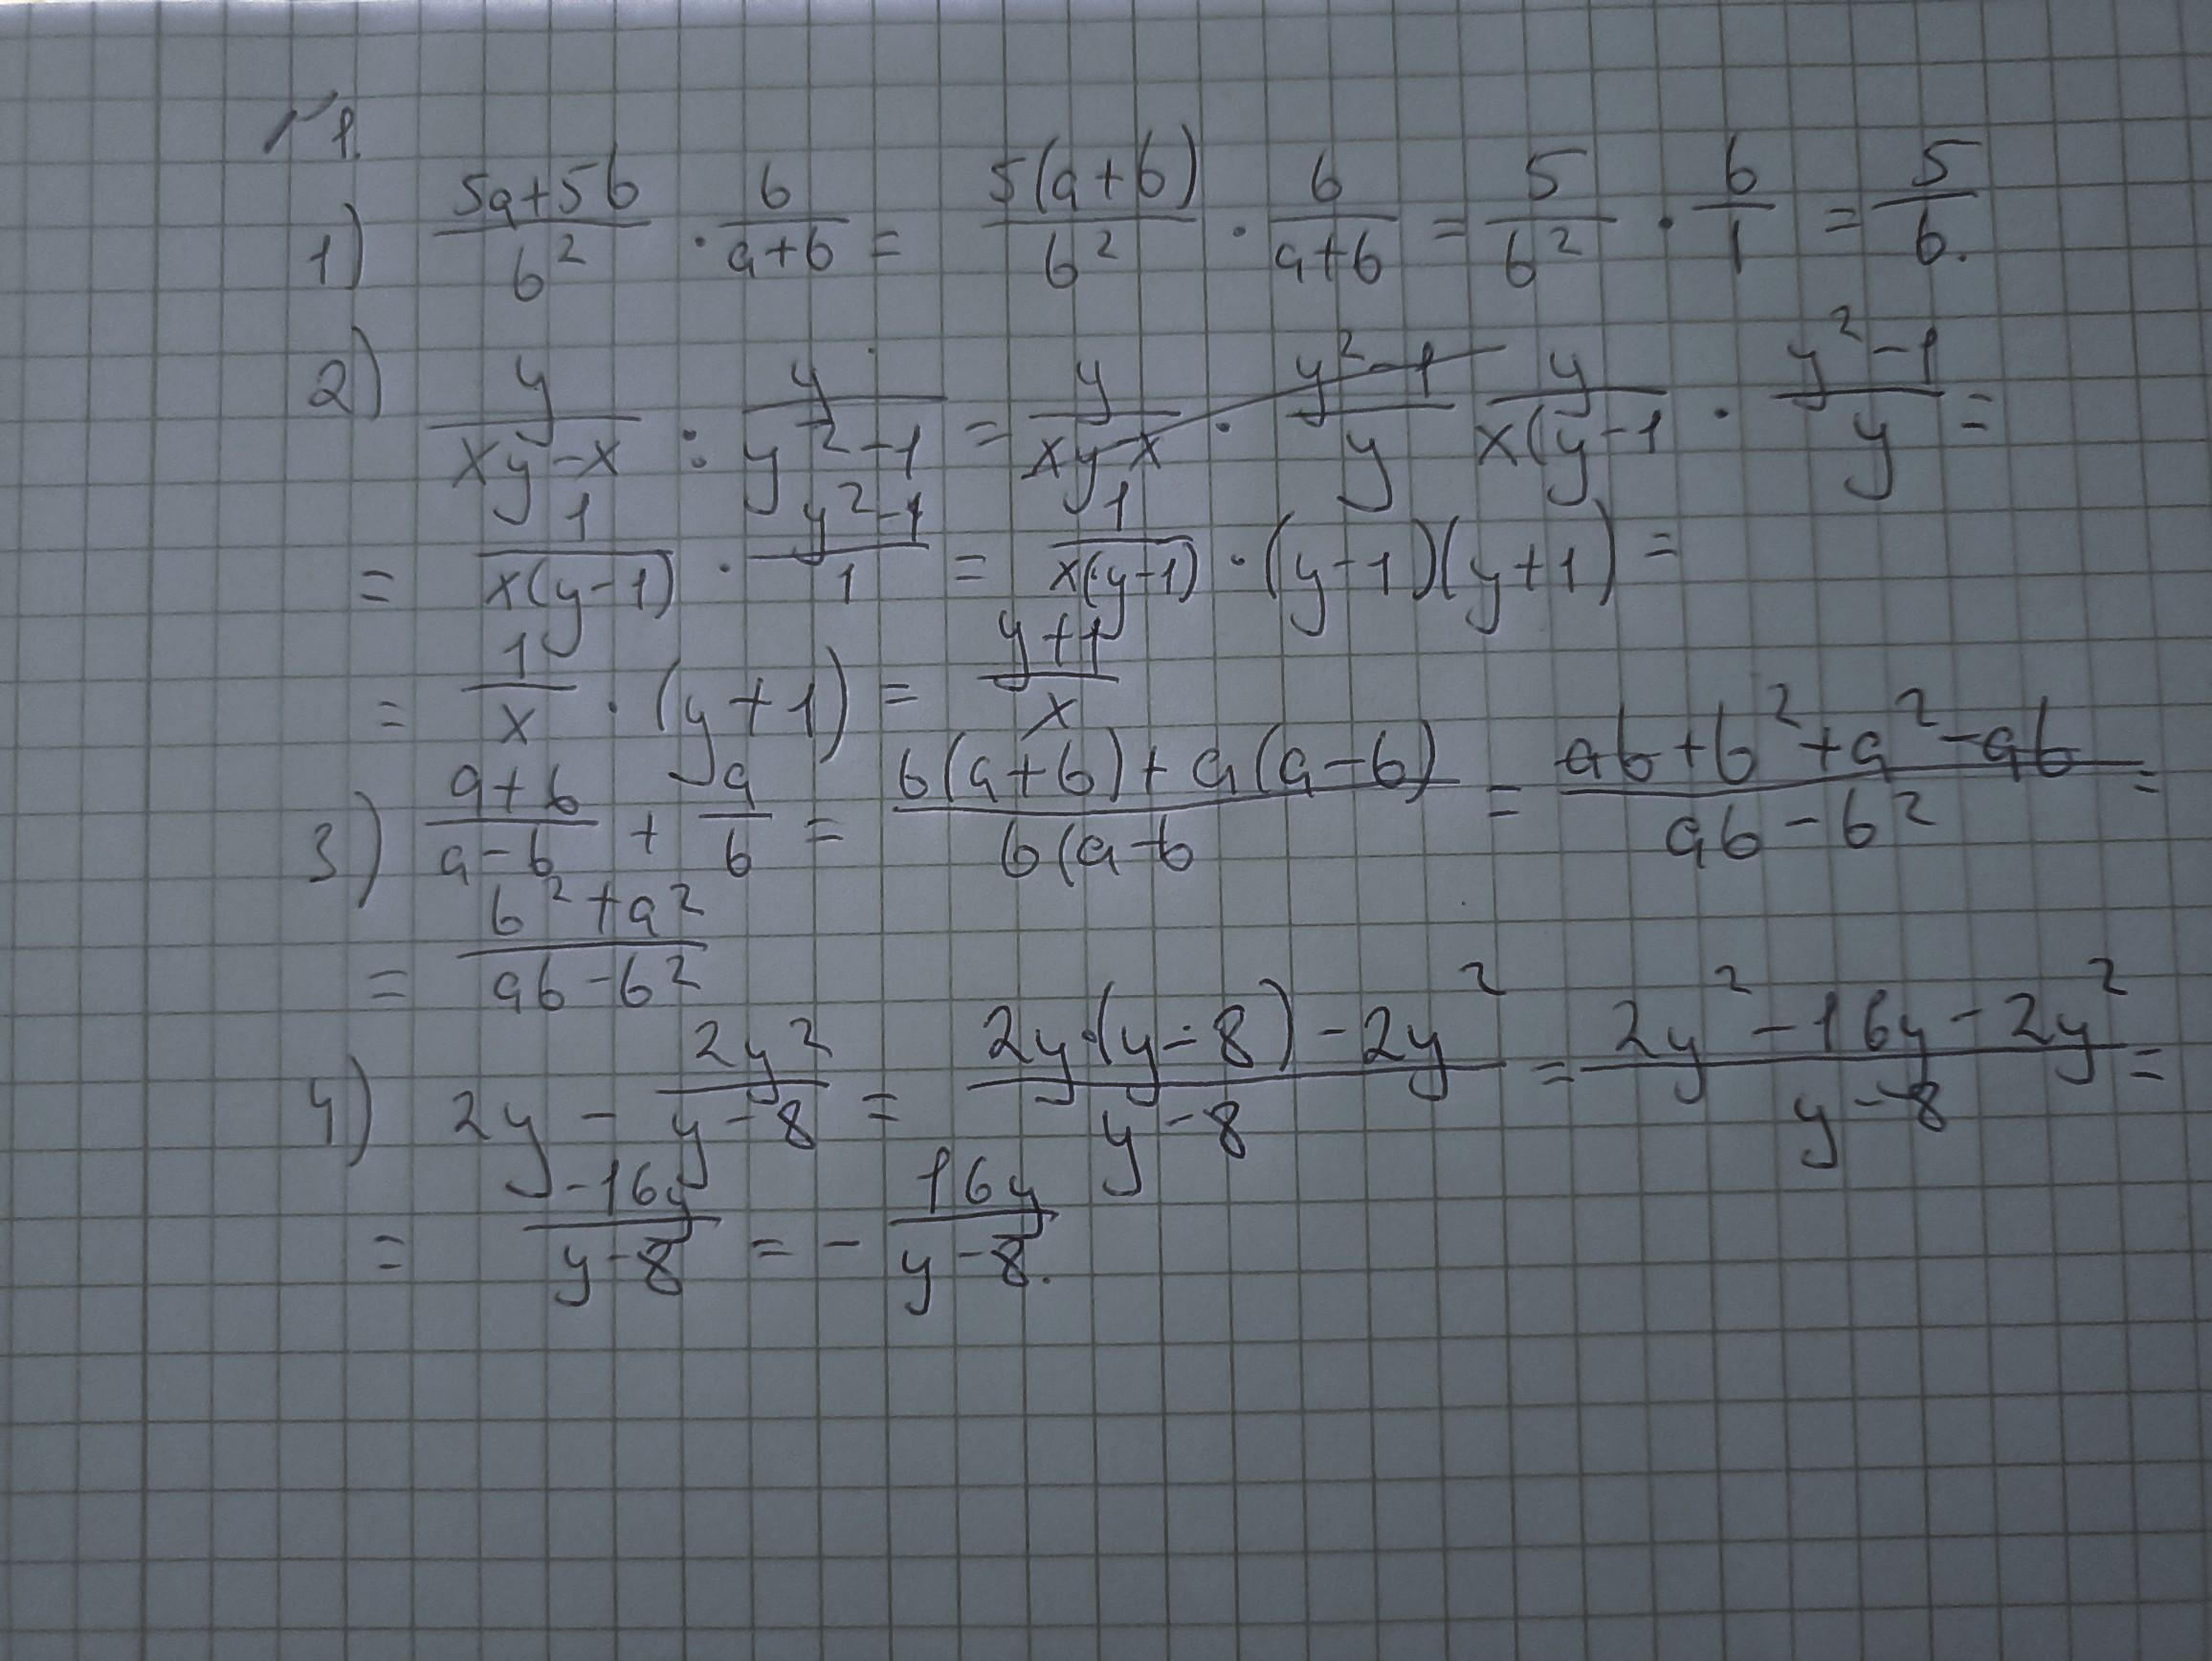 №1.
1) (5a+5b)/b² · b/(a+b) = 5(a+b)/b² · b/(a+b) = 5/b² · b/1 = 5/b.
2) y/(xy-x) : y/(y²-1) = y/(xy-x) · (y²-1)/y y/(x(y-1) · (y²-1)/y =
= 1/(x(y-1)) · (y²-1)/1 = 1/(x(y-1)) · (y-1)(y+1) =
= 1/x · (y+1) = (y+1)/x
3) (a+b)/(a-b) + a/b = (b(a+b)+a(a-b))/(b(a-b) = (ab+b²+a²-ab)/(ab-b²) =
= (b²+a²)/(ab-b²)
4) 2y - 2y²/(y-8) = (2y·(y-8)-2y²)/(y-8) = (2y²-16y-2y²)/(y-8) =
= -16y/(y-8) = - 16y/(y-8).